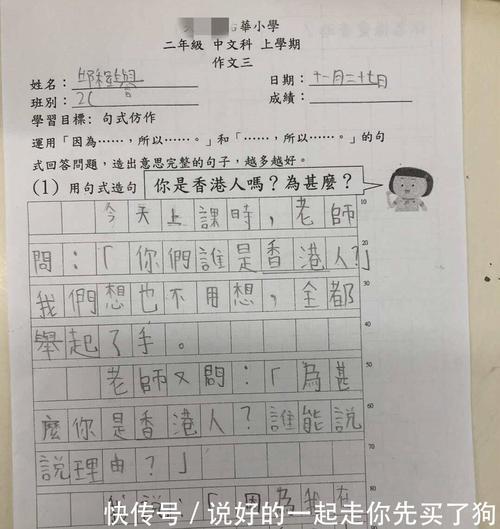 華小學
二年級 中文科 上學期
作文三
姓名：
日期：十一月二十七日
班別：2C
成績：
學習目標：句式仿作
運用「因為……，所以……。」和「……，所以……。」的句
式回答問題，造出意思完整的句子，越多越好。
(1) 用句式造句
你是香港人嗎？為甚麼？
今天上課時，老師
10
問：「你們誰是香港人？」
20
我們想也不用想，全都
30
舉起了手。
40
老師又問：「為甚
50
麼你是香港人？誰能說
60
說理由？」
70
說：「因為我在
80
快传号／说好的一起走你先买了狗